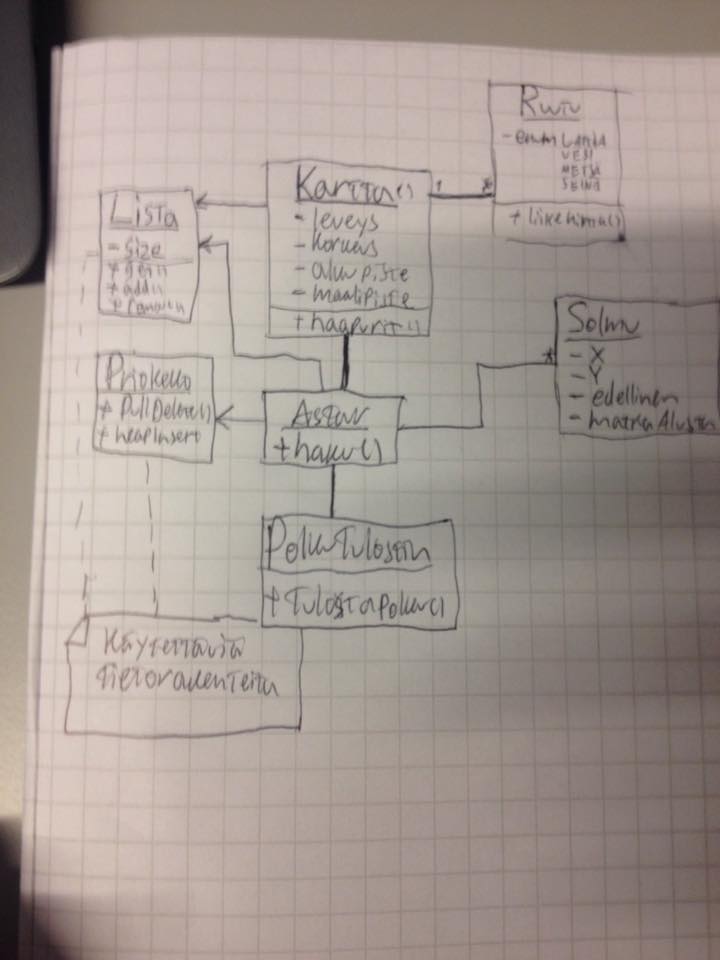 Ruutu
- enum LAMPI
VESI
METSÄ
SEINÄ
Kartta()
- leveys
- korkeus
- alkupiste
- maalipiste
+ haaparit()
1
*
Lista
- size
+ get()
+ add()
Solmu
*
- X
- Y
- edellinen
- matkaAlustan
Priokeko
+ PullDelete()
+ heapInsert
Astar
+ haku()
PolkuTulostin
+ TulostaPolku()
Käytettäviä
tietorakenteita